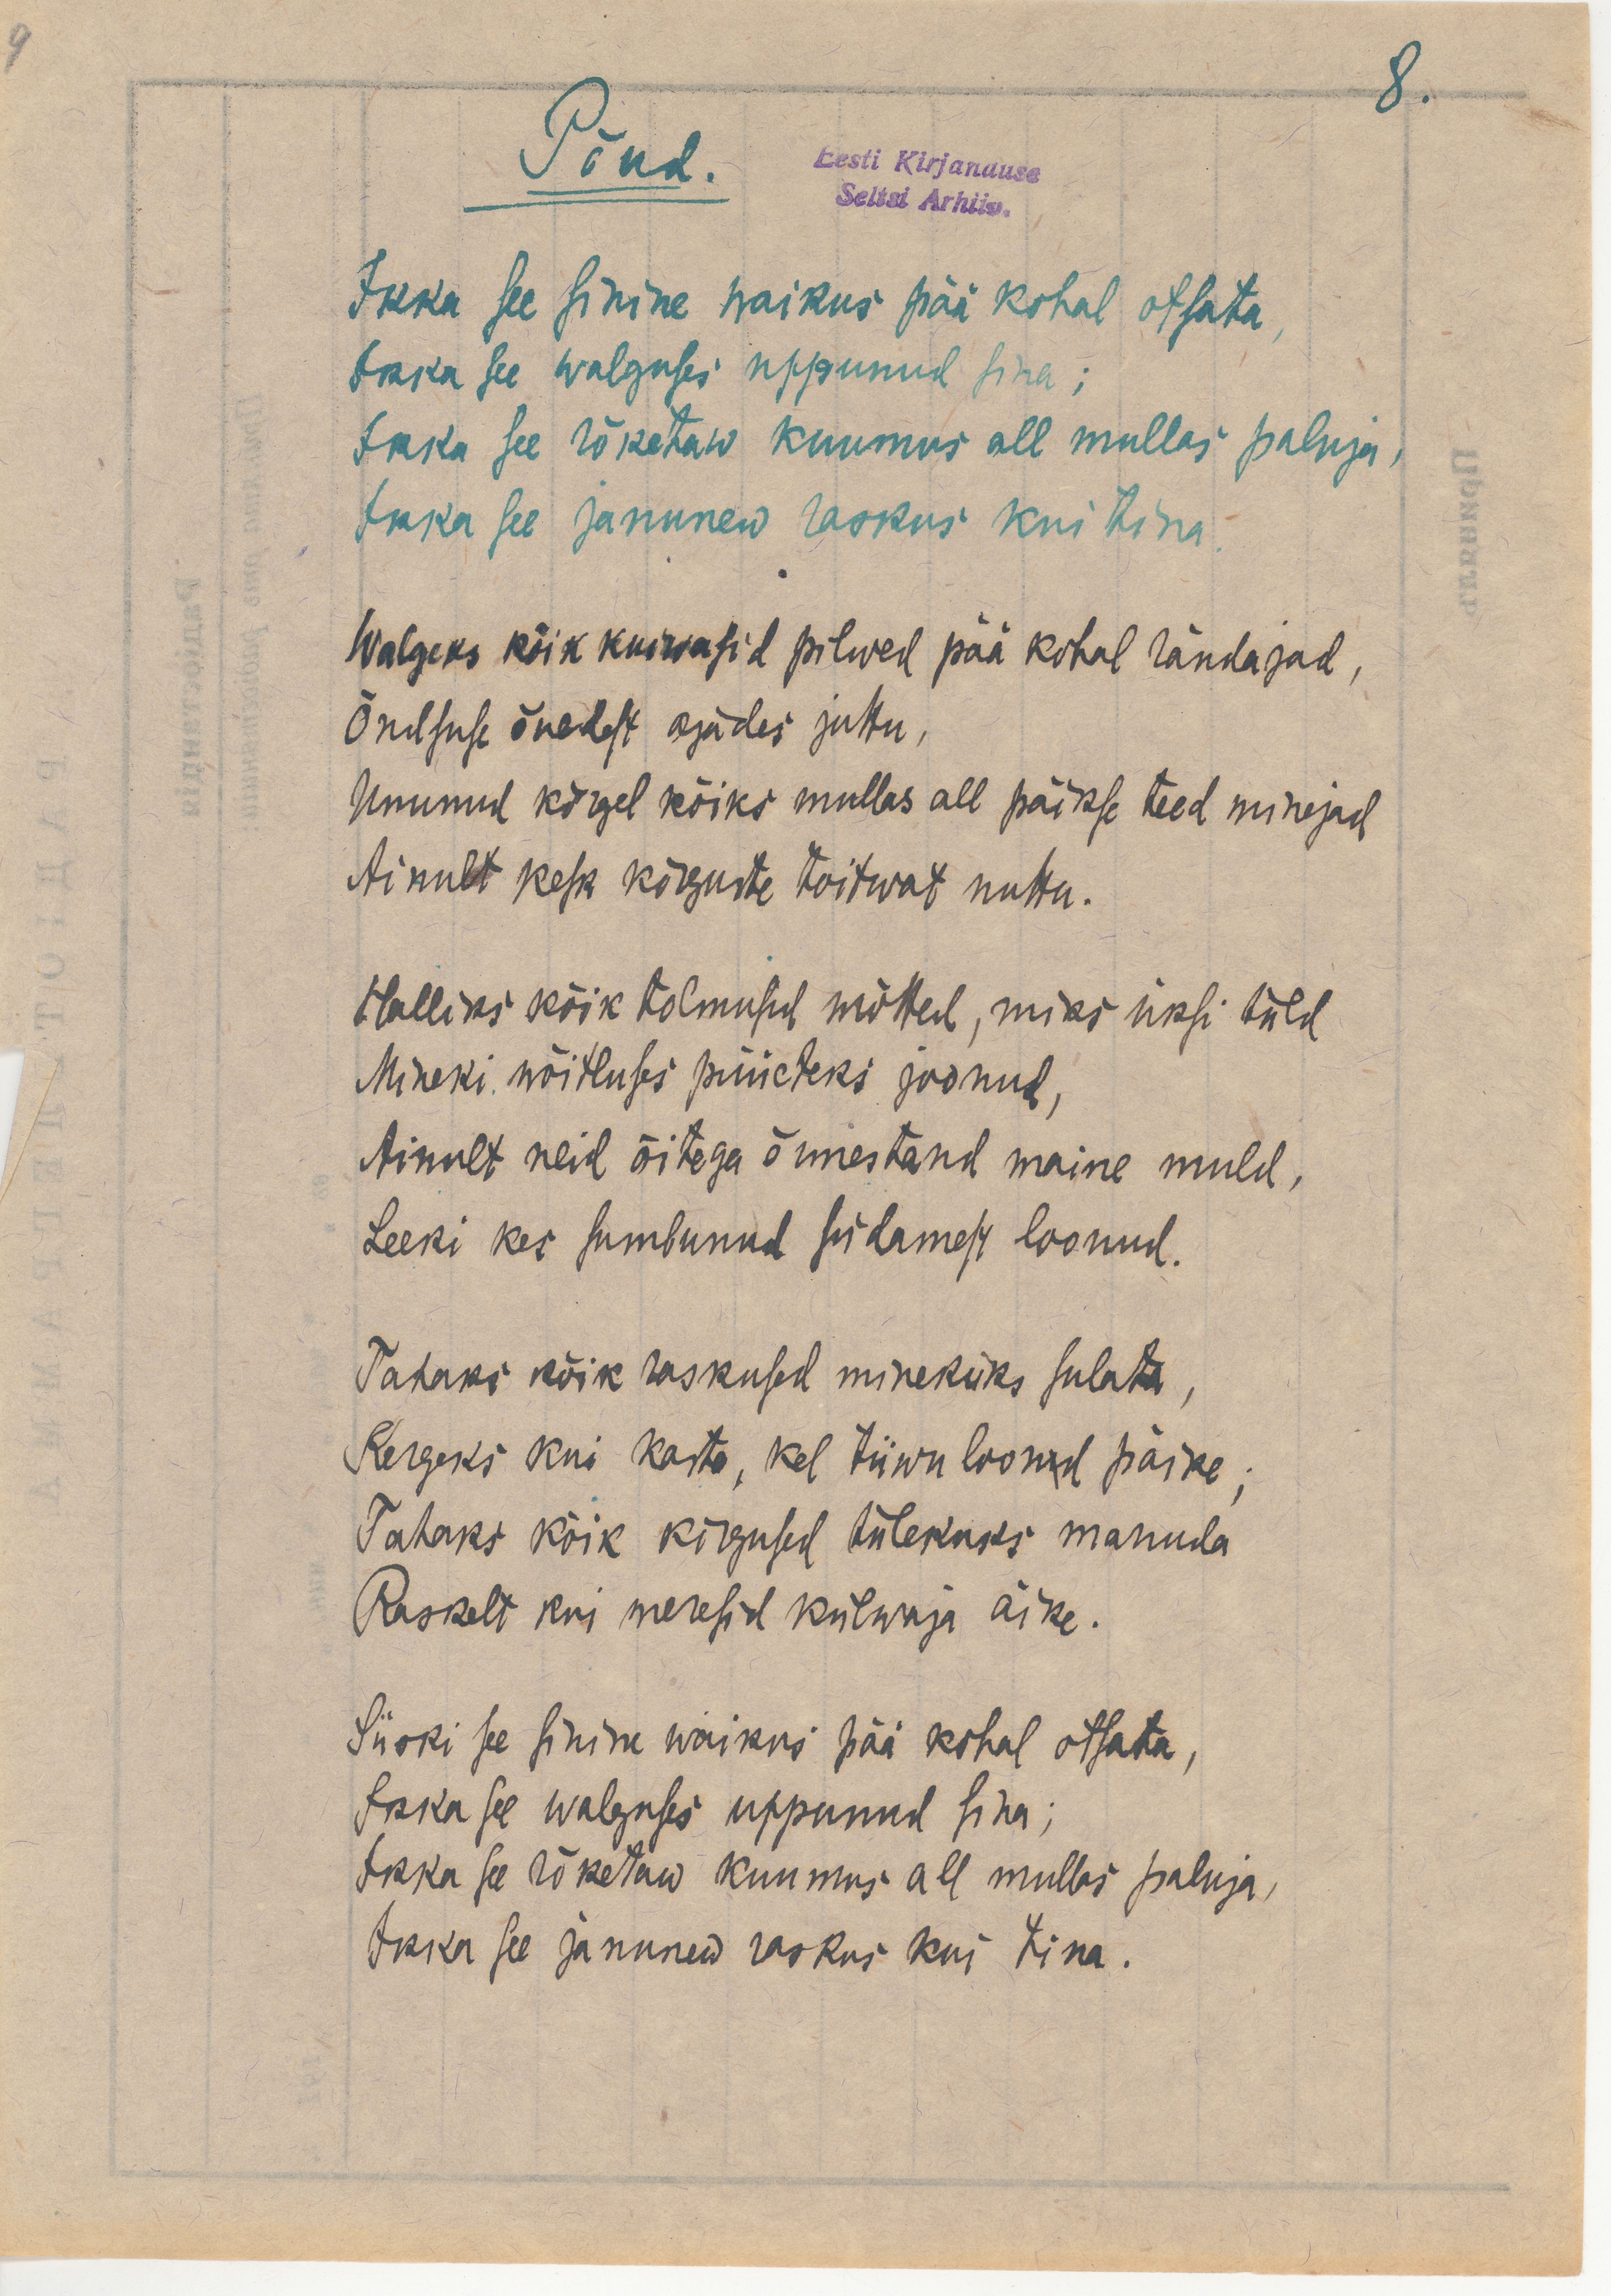 9
8.
Põud.
Eesti Kirjanduse
Seltsi Arhiiv.
Ikka see sinine waikus pää kohal otsata,
Ikka see walguses uppunud sina;
Ikka see rõketaw kuumus all mullas paluja,
Ikka see janunew raskus kui tina.
Walgeks kõik kuiwasid pilwed pää kohal rändajad,
Õndsuse õnedest ojades juttu,
Ununud kõrgel kõiks mullas all päikse teed minejad
Ainult kesk kõrguste toitwat nuttu.
Halliks kõik tolmusid mõtted, miks üksi tuld
Mineki wõitluses püüeteks joonud,
Ainult neid õitega õnnestand maine muld,
Leeki kes sumbunud südamest loonud.
Tahaks kõik raskused minekuks sulata,
Kergeks kui kaste, kel tiiwu loonud päike;
Tahaks kõik kõrgused tulekuks manuda
Raskelt kui meresid külwaja äike.
Siiski see sinine waikus pää kohal otsata,
Ikka see walguses uppunud sina;
Ikka see rõketaw kuumus all mullas paluja,
Ikka see janunew raskus kui tina.